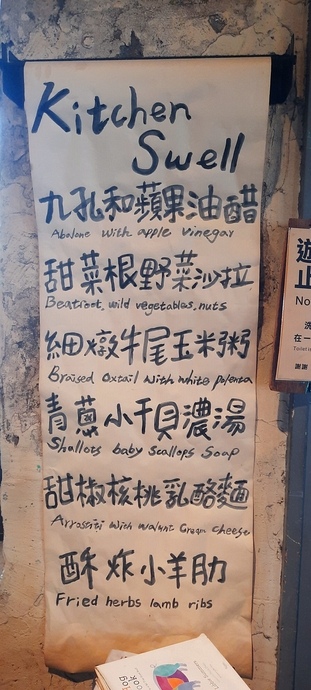 Kitchen
Swell
九孔和蘋果油醋
Abalone with apple vinegar
甜菜根野菜沙拉
Beatroot, wild vegetables, nuts
細燉牛尾玉米粥
Braised oxtail with white polenta
青蔥小干貝濃湯
Shallots baby scallops Soap
甜椒核桃乳酪麵
with walnut Cream cheese
酥炸小羊肋
Fried herbs lamb ribs
遊
止
No
洗
在一
謝謝